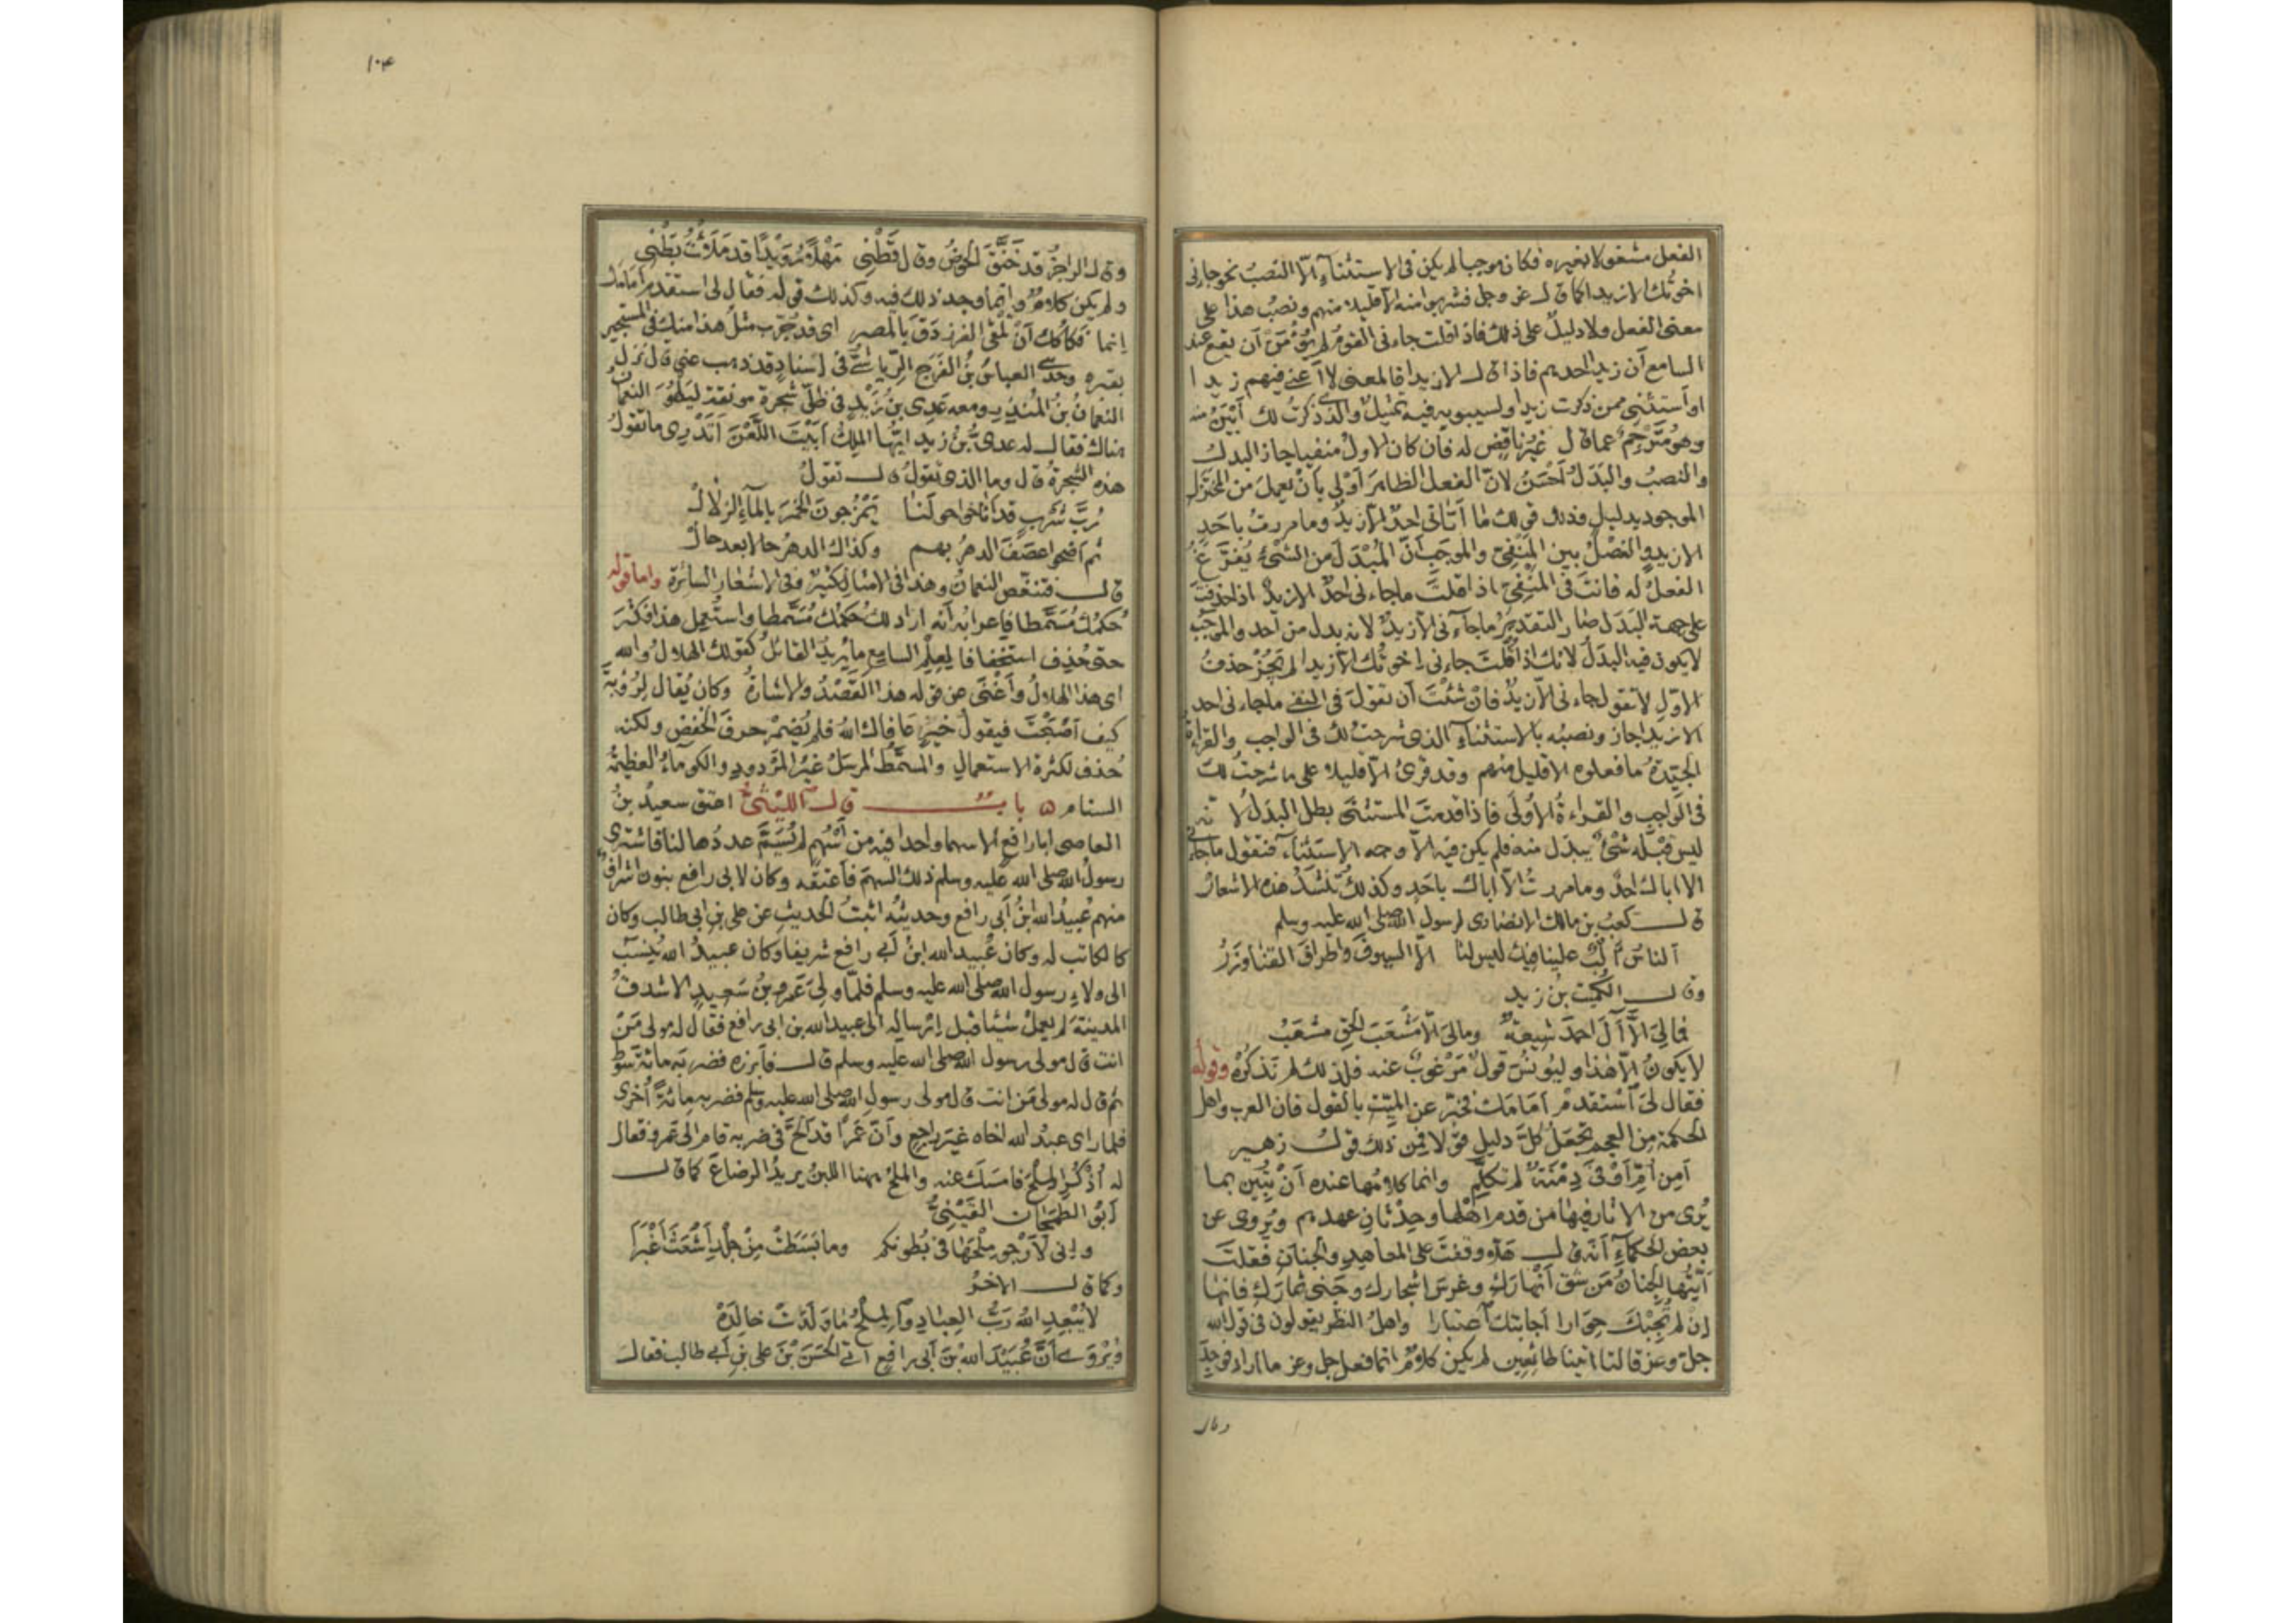 الفعل مشغولا بغيره فكان موجبا لم يكن فى الاستثناء الّا النصبُ نحو جاءنى
اخوتُك الا زيدا كما قال عز وجل فشربوا منه الا قليلا منهم ونصبُ هذا على
معنى الفعل والا دليلٌ على ذلك فاذا قلت جاءنى القومُ لم يُؤْمَنْ ان يقع عند
السامع أن زيدا احدهم فاذا قال الا زيدا فالمعنى لا أعنى فيهم زيدا
او أستثنى ممن ذكرت زيدا ولسيبويه فيه تمثيلٌ والذى ذكرتُ لك أبْيَنُ منه
وهو مُتَرْجِمٌ عما قال غيرُ ناقِضٍ له فان كان الاولُ منفيا جاز البدلُ
والنصبُ والبَدَلُ أحْسَنُ لانّ الفعل الظاهرَ أَوْلى بأنْ يعملَ من المخْتَزَلِ
الموجود بدليلٍ وذلك قولك ما أتانى احدٌ الا زيدٌ وما مررتُ باحَدٍ
الا زيدٍ والفصْلُ بين المنْفىّ والموجَبِ أنّ المُبْدَلَ من الشىْء يُفَرَّغُ
الفعلُ له فانتَ فى المنْفىّ اذا قلتَ ما جاءنى احدٌ الا زيدٌ اذا حذفتَ
على جهة البَدَل صار التقديرُ ما جاءنى الّا زيدٌ لانه بدل من أحد والموجَبُ
لا يكون فيه البدلُ لانك اذا قُلتَ جاءنى اخوتُك الّا زيدا لم يَجُزْ حذفُ
الاوّلِ لا تقول جاءنى الّا زيدٌ فانْ شئتَ أن تقولَ فى النفى ما جاءنى احد
الا زيدا جاز ونصبُه بالاستثناءِ الذى شرحتُ لك فى الواجب والقراءة
الجيّدةُ ما فعلوه الا قليل منهم وقد قرئ الّا قليلا على ما شرحتُ لك
فى الواجب والقراءةُ الأُولى فاذا قدمتَ المستثنَى بطل البدَلُ لانه
ليس قبْلَه شىْءٌ يبدَل منه فلم يكن فيه الّا وجه الاستثناء فتقول ما جاءنى
الا اباك احدٌ وما مررتُ الّا اباك باحَدٍ وكذلك تُنْشَدُ هذه الاشعارُ
قال كعبُ بن مالك الانصارى لرسول الله صلى الله عليه وسلم
ألناسُ أَلْبٌ علينا فيك ليس لنا الّا السيوفَ واطرافَ القنا وزَرُ
وقال الكُمَيت بنُ زيد
فمالىَ الّا آلَ احمدَ شيعةٌ ومالىَ الّا مَشْعَبَ الحقِّ مشْعَبُ
لا يكونُ الّا هذا وليونُسَ قولٌ مَرْغوبٌ عنه فلذلك لم نَذكُرْه وقوله
فقال لىَ اسْتقدمْ أمَامَك مُخبرٌ عن الميّت بالقول فان العرب واهل
الحكمة من العجم تجعَلُ كلَّ دليلٍ قولا فمِن ذلك قولُ زهير
أمِن أمّ أوْفَى دِمْنَةٌ لم تكلّمِ وانما كلامُها عنده أنْ تُبَيِّن بما
يُرى من الاثار فيها من قدم اهْلها وحِدْثان عهدهم ويُروى عن
بعض الحكماء أنه قال هلّا وقفتَ على المعاهدِ والجنانِ فقلتَ
أيّتُها الجِنانُ مَن شق أنْهارَكِ وغرسَ اشجارك وجنى ثمارَكِ فانها
إنْ لم تُجِبْك حِوارا أجابتك اعتبارا واهلُ النظر يقولون فى قول الله
جل وعز قالتا اتينا طائعين لم يكن كلامٌ انما فعل جل وعز ما اراد فوُجِدَ
وقال
١٠٤
وقال الراجزُ قد خَنَّقَ الحَوضُ وقال قَطْنِى مَهْلًا رُوَيْدًا قد مَلَأْتَ بَطْنِى
ولم يكن كلامٌ وانما وجد ذلك فيه وكذلك قوله فقال لى استقدمْ أمامَك
إنما فَكاكُك أنْ تَلْقَى الفرزدقَ بالمصر اى قد جُرّب مثلُ هذا منك فى المستجير
بقبره وحدثنى العباسُ بنُ الفَرَج الرّياشىّ فى اسنادٍ قد ذهب عنى قال نزل
النعمانُ بنُ المُنذِر ومعه عَدِى بن زيْدٍ فى ظلّ شجرة مونقة ليَلْهُوَ النعمانُ
هناك فقال له عدىُّ بْنُ زيد ايّها الملِكُ أبَيْتَ اللّعْنَ أتَدْرِى ما تقولُ
هذه الشجرةُ قال وما الذى تقولُ قال تقولُ
رُبَّ شَرْبٍ قد أناخوا حولَنا يَمْزُجونَ الخمْرَ بالماءِ الزلالْ
ثم أضحوا عصَفَ الدهرُ بهم وكذاك الدهرُ حالا بعد حالْ
قال فتنغّص النعمانُ وهذا فى الامثال كثيرٌ وفى الاشعار السائرة واما قوله
حُكمُك مُسَمَّطا فاعرابُه أنه اراد لك حُكمُك مُسَمَّطا واستُعمِل هذا فكثُرَ
حتى حُذِف استخفافا لعِلْمِ السامع ما يُريدُ القائلُ كقولك الهلالُ والله
اى هذا الهلالُ وأَغْنَى عن قوله هذا القصْدُ والاشارةُ وكان يُقال لرُؤْبةَ
كيف أصْبَحْتَ فيقول خيرٍ عافاك اللهُ فلم يُضْمِرْ حرفَ الخفض ولكنه
حُذف لكثرة الاستعمالِ والمسمَّطُ المرسَلُ غيرُ المردودِ والكوماءُ العظيمةُ
السنام ٥ باب قال الليثىُّ اعتق سعيدُ بنُ
العاصى ابا رافع الا سهما واحدا فيه من أسْهُمٍ لم يُسَمَّ عددُها لنا فاشترى
رسولُ الله صلى الله عليه وسلم ذلك السهمَ فأعتقه وكان لابى رافع بنون أشراف
منهم عُبيدُ الله بْنُ أبى رافع وحديثُه أثبتُ الحديثِ عن على بن ابى طالب وكان
كالكاتب له وكان عُبيد الله ابنُ أبى رافع شريفا وكان عبيدُ الله يُنسَبُ
الى ولاءِ رسول الله صلى الله عليه وسلم فلمّا ولىَ عَمرو بنُ سَعيدٍ الاشدقُ
المدينةَ لم يعمل شيئا قبل ارساله الى عبيد الله بن ابى رافع فقال له مولى مَنْ
انت قال مولى رسول الله صلى الله عليه وسلم قال فأبرزه فضربه مائة سَوْط
ثم قال له مولى مَن انت قال مولى رسولِ الله صلى الله عليه وسلم فضربه مِائةً أخرى
فلما راى عبدُ الله اخاه غيرَ راجعٍ وأنّ عَمْرًا قد ألحَّ فى ضربه قام الى عَمرو فقال
له أُذْكُرِ المِلْحَ فامسَكَ عنه والملحُ ههنا اللبنُ يريدُ الرضاعَ كما قال
أبو الطَّمَحان القَيْنِىُّ
وإنى لَأرْجو مِلْحَها فى بُطونكم وما بَسَطَتْ مِنْ جِلْدِ أشْعَثَ أغْبَرَا
وكما قال الاخرُ
لا يُبْعِدِ اللهُ رَبُّ العِبادِ والمِلْحُ ما وَلَدَتْ خالِدَهْ
ويُرْوَى أنَّ عُبَيْدَ اللهِ بْنَ أبى رافع أتى الحَسَنَ بْنَ على بنِ أبى طالب فقال